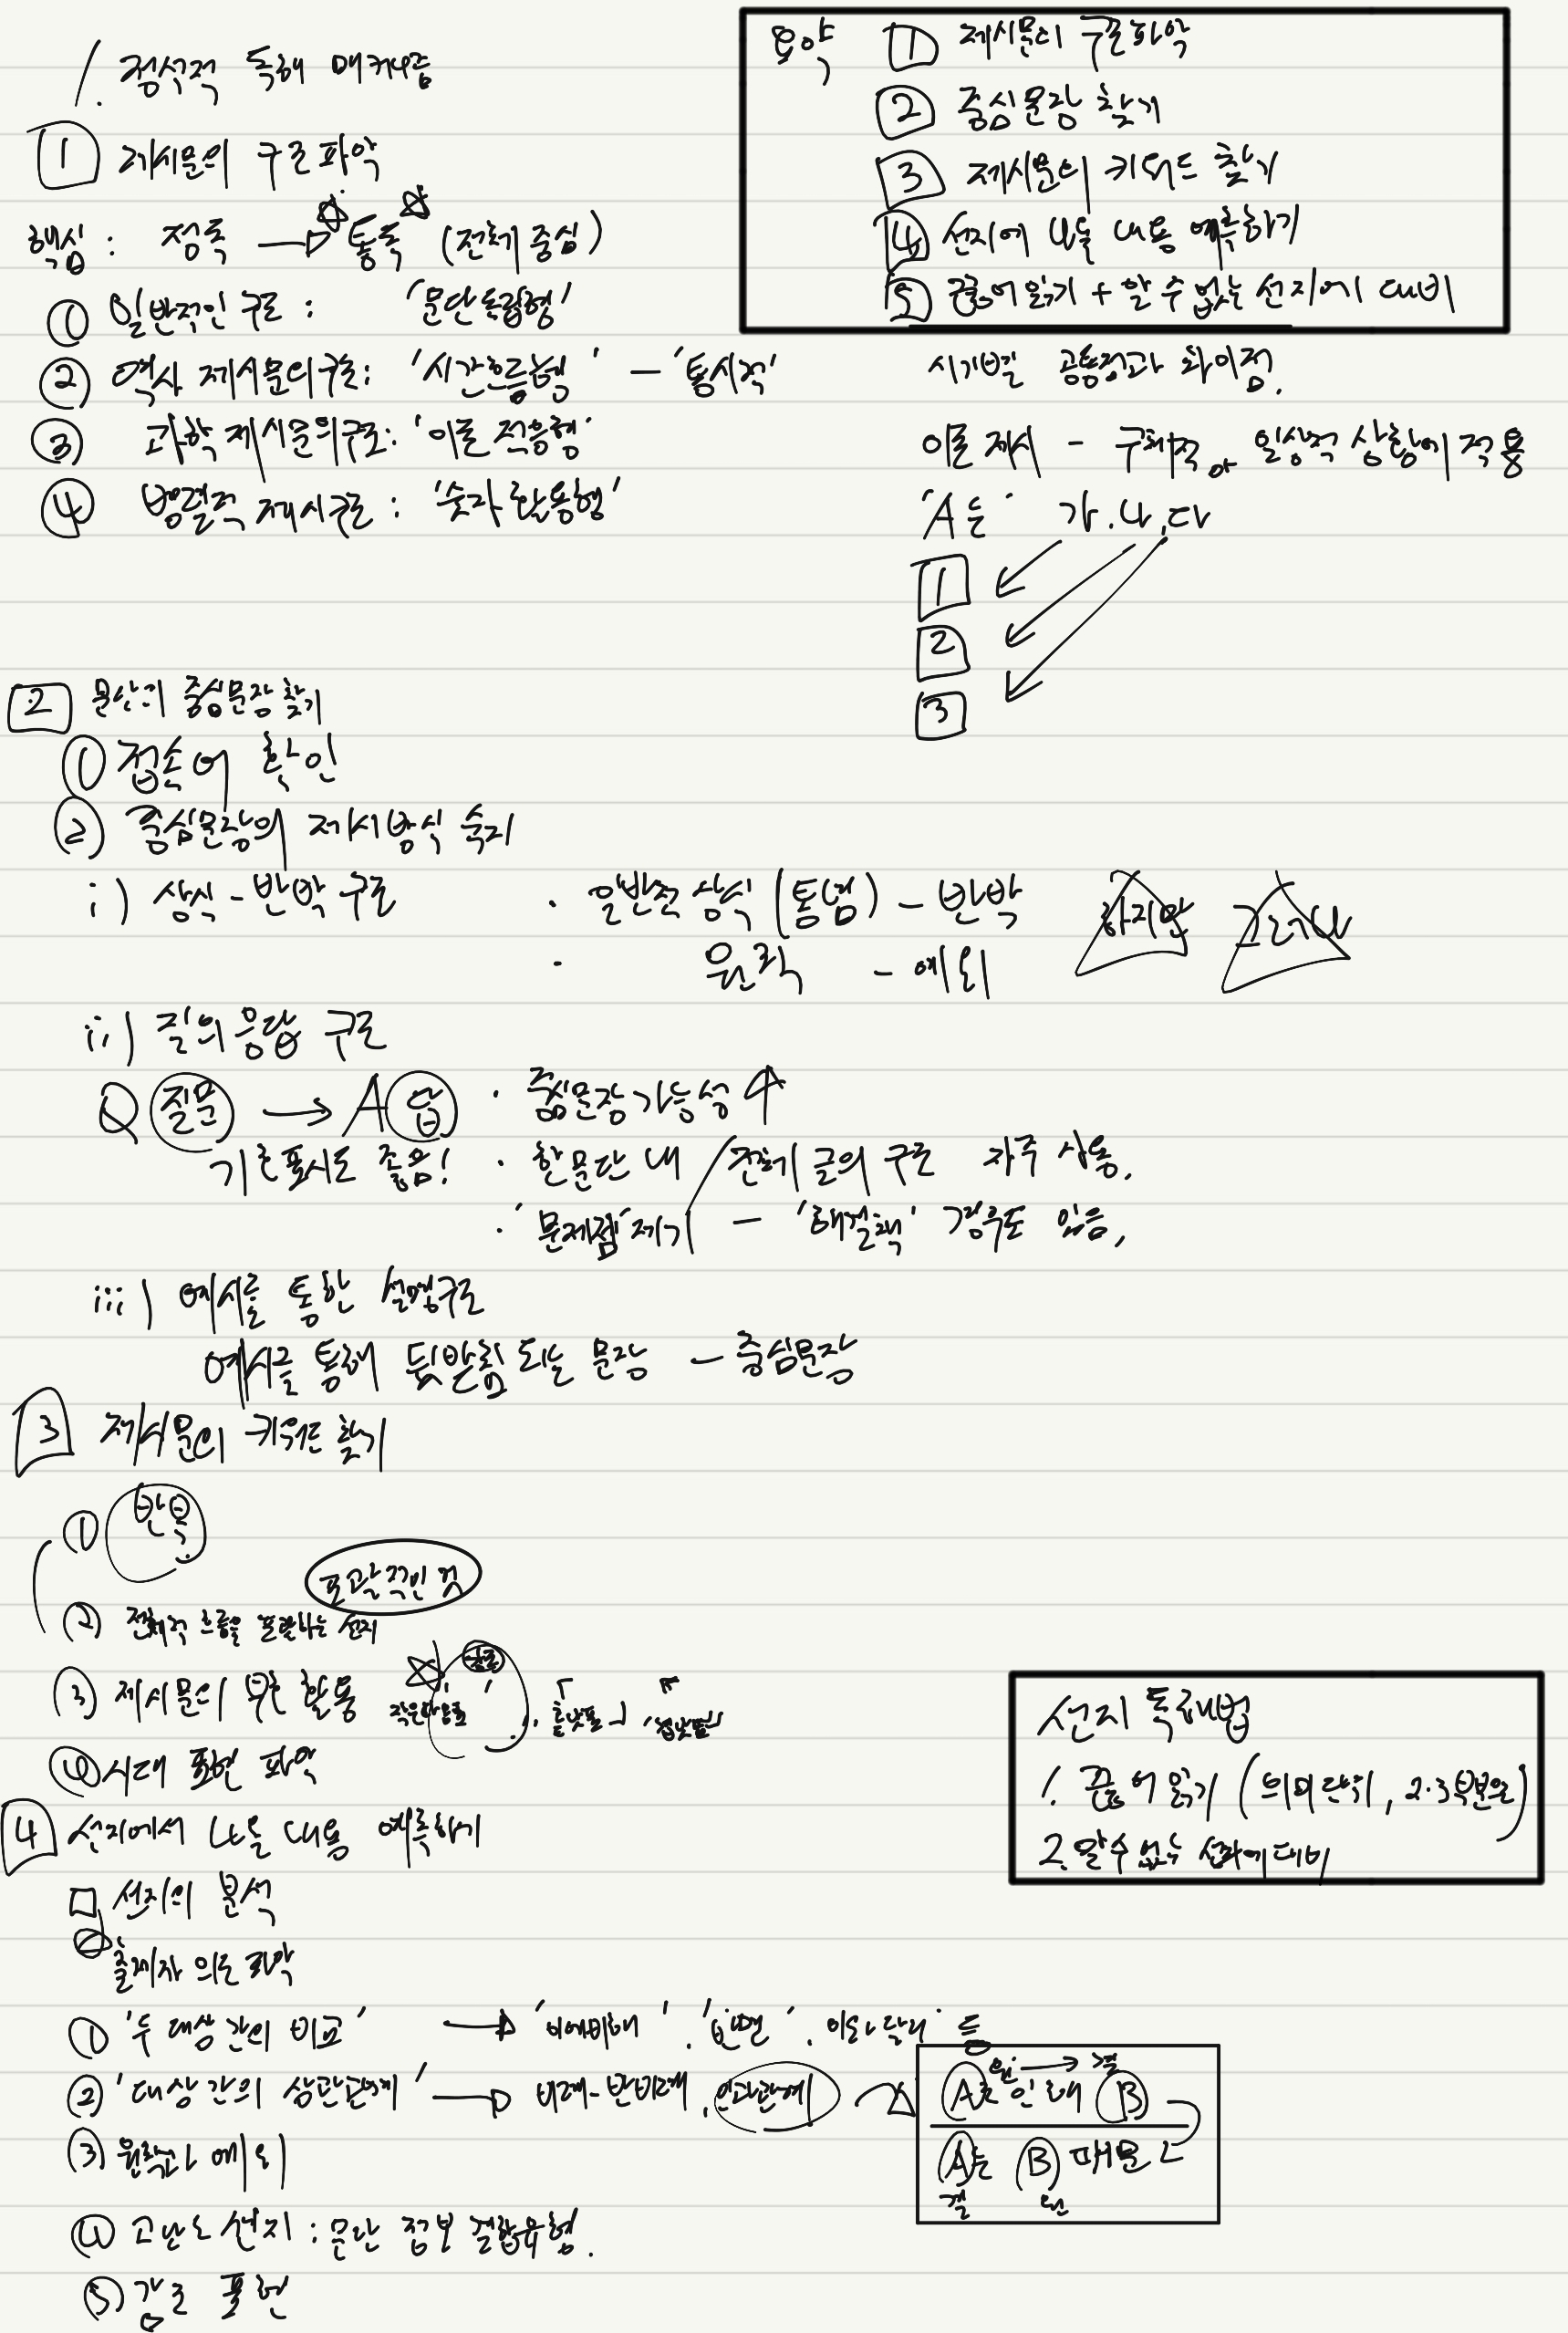 1. 정석적 독해 매커니즘
요약 1 제시문의 구조파악
2 중심문장 찾기
3 제시문의 키워드 찾기
4 선지에 나올 내용 예측하기
5 끊어읽기 + 알 수 없는 선지에 대비
1 제시문의 구조 파악
핵심 : 정독 → 통독 (전체 중심)
① 일반적인 구조 : '문단통합형'
② 역사 제시문의 구조 : '시간흐름형' - '통시적' 시기별 공통점과 차이점.
③ 과학 제시문의 구조 : '이론 적용형' 이론 제시 - 구체적, 일상적 상황에 적용
④ 병렬적 제시구조 : '숫자 활용형' 'A는' 가, 나, 다
1
2
3
2 문단의 중심문장 찾기
① 접속어 확인
② 중심문장의 제시방식 숙지
i) 상식 - 반박 구조 · 일반적 상식 (통념) - 반박 하지만 그러나
· 원칙 - 예외
ii) 질의응답 구조
Q 질문 → A 답 · 중심문장 가능성 ↑
기호표시도 좋음! · 한 문단 내 / 전체 글의 구조 자주 사용.
· '문제점' 제기 - '해결책' 경우도 있음.
iii) 예시를 통한 설명구조
예시를 통해 뒷받침 되는 문장 - 중심문장
3 제시문의 키워드 찾기
① 반복
포괄적인 것
② 전체적 흐름을 포괄하는 선지
③ 제시문의 부호 활용 작은따옴표 ' ', 「홑낫표」 『겹낫표』
④ 시대 표현 파악
선지 독해법
1. 끊어 읽기 (의미단위, 2·3부분으로)
2. 알 수 없는 선지에 대비
4 선지에서 나올 내용 예측하기
선지의 분석
출제자 의도 파악
① '두 대상 간의 비교' → '이에 비해', '반면', '이와 달리' 등
② '대상 간의 상관관계' → 비례-반비례, 인과관계
원 → 결
A로 인해 B
A는 B 때문
결 원
③ 원칙과 예외
④ 고난도 선지 : 문단 정보 결합유형.
⑤ 강조 표현